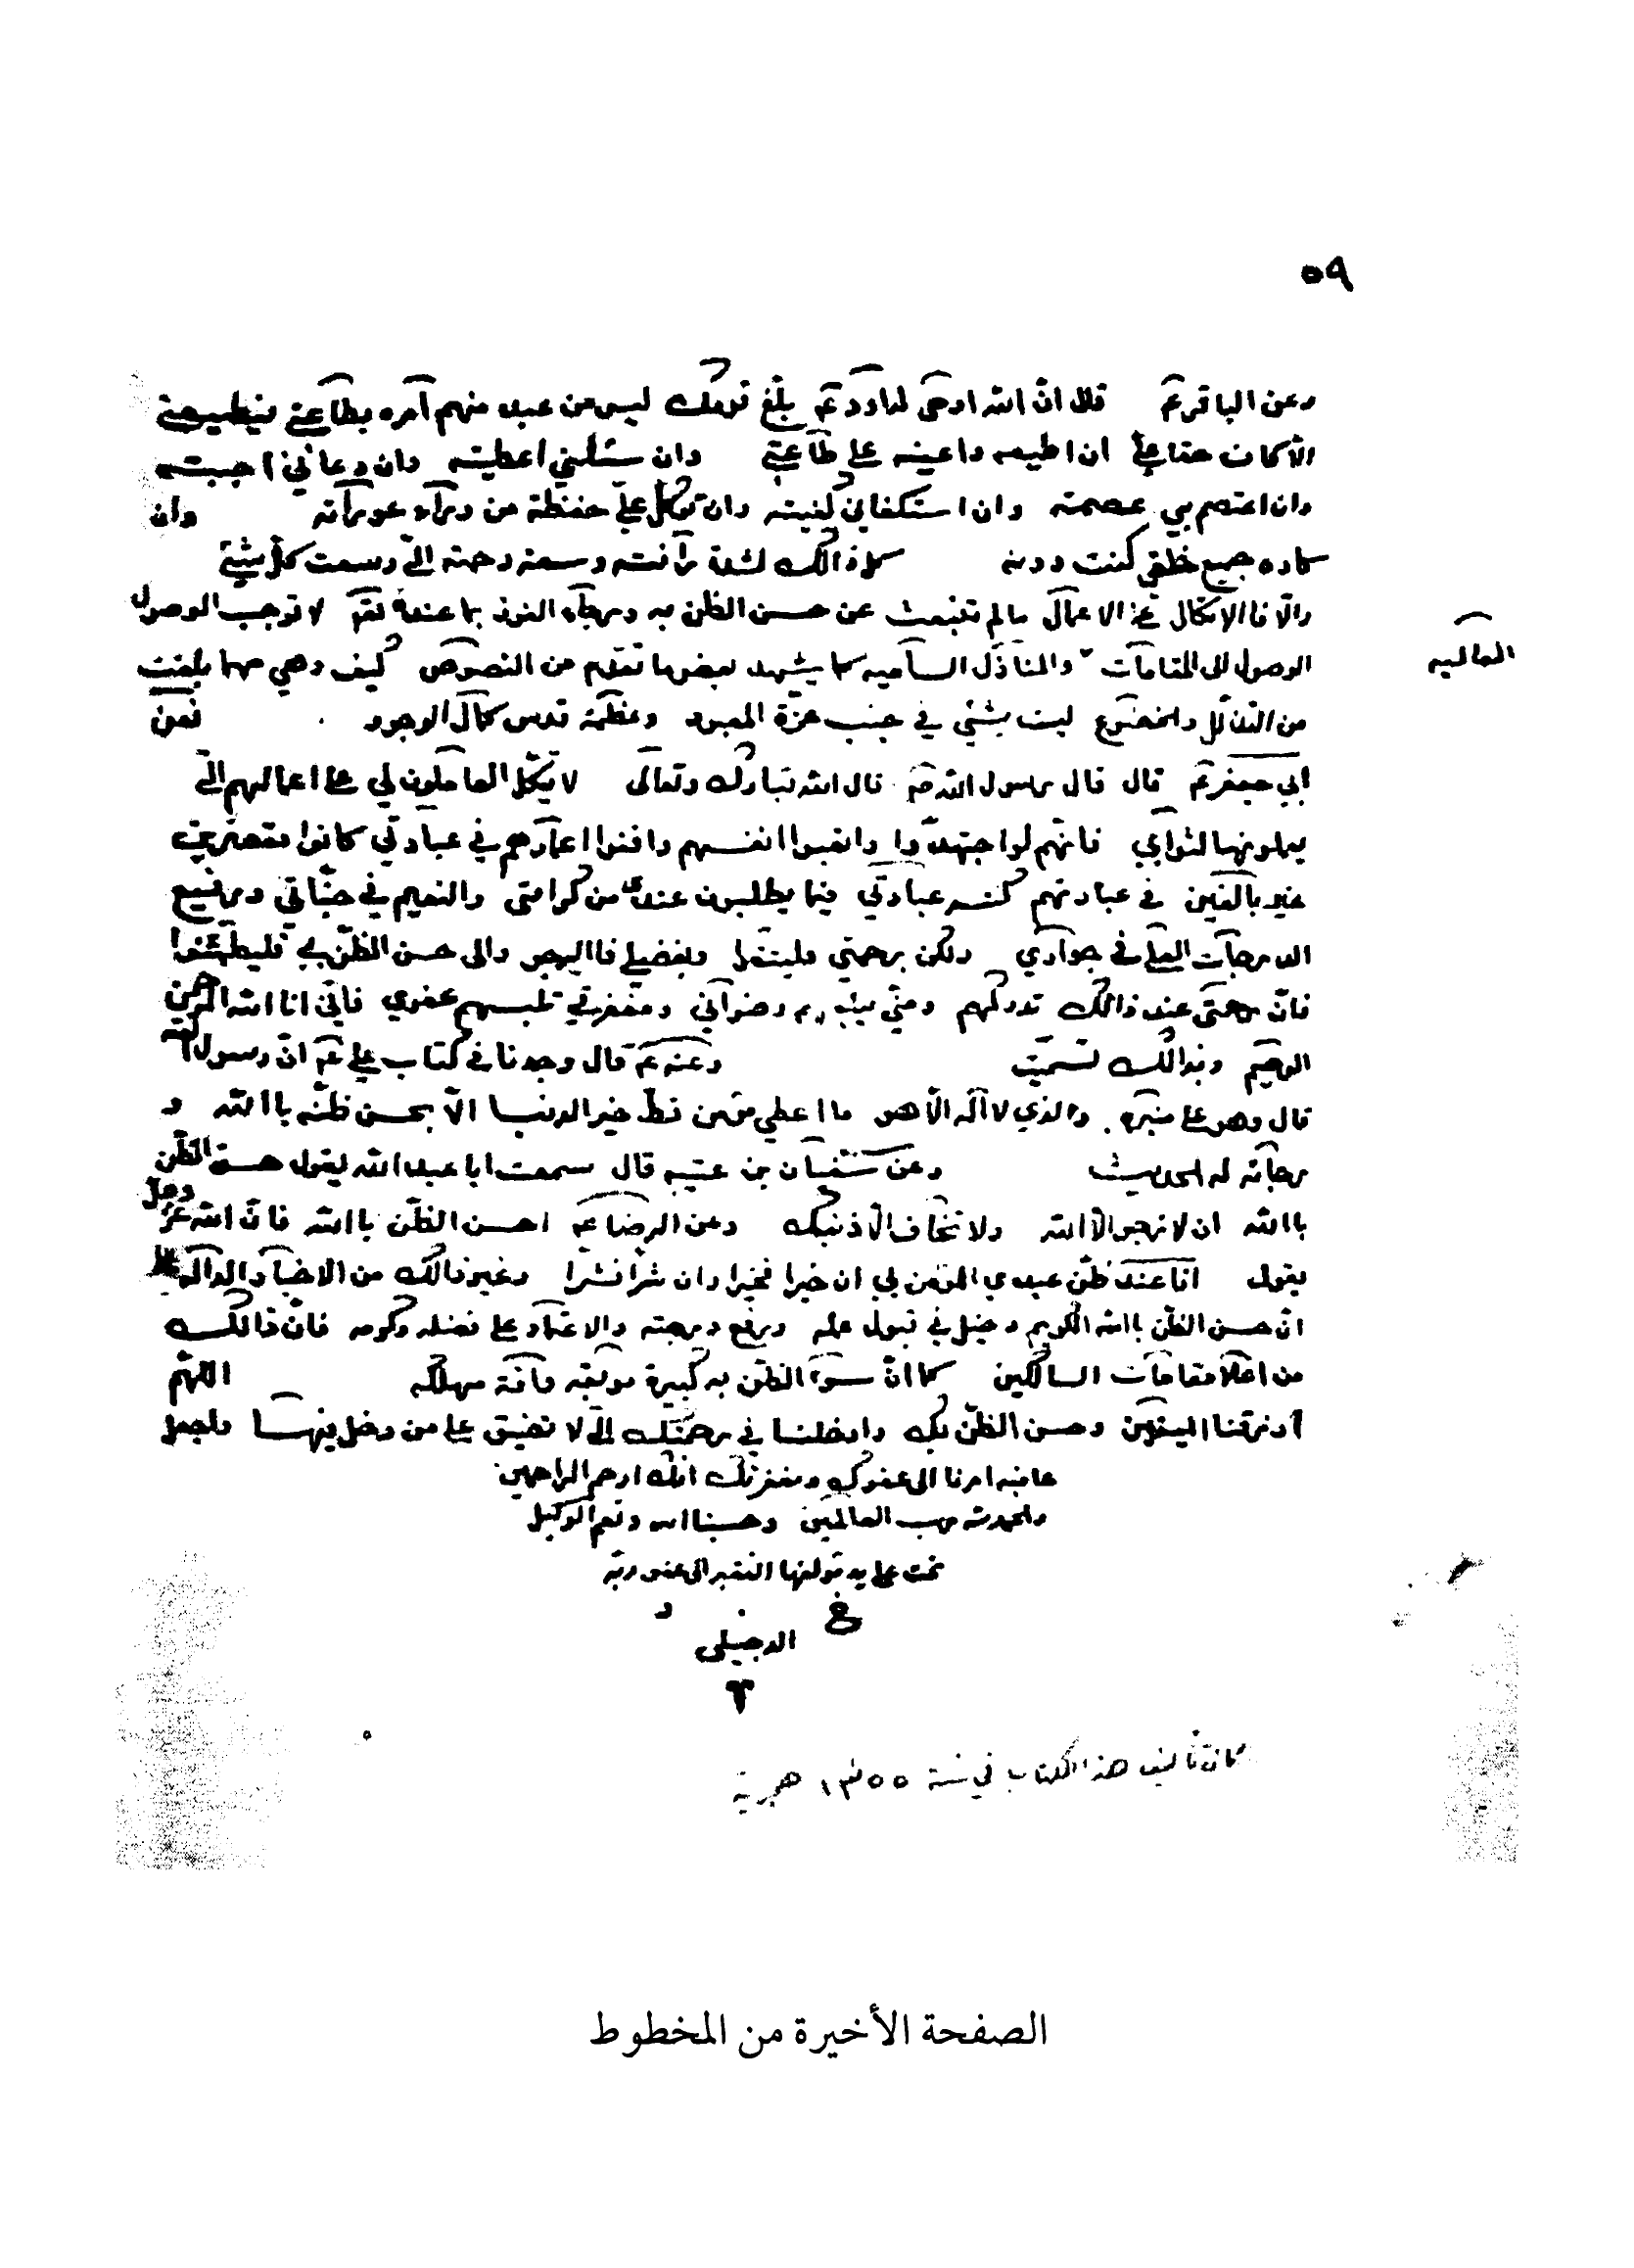 ٥٩
وعن الباقر ع قال ان الله اوحى لداود ع بلّغ قومك ليس من عبد منهم آمره بطاعتي فيطيعني
الّا كان حقا عليّ ان اطيعه واعينه على طاعتي وان سئلني اعطيته وان دعاني اجبته
وان اعتصم بي عصمته وان استكفاني كفيته وان توكل عليّ حفظته من ورآء عوراته وان
كاده جميع خلقي كنت دونه كل ذالك لشدة رأفته وسعة رحمته التي وسعت كلّ شيئ
والّا فالاتكال على الاعمال مالم تنبعث عن حسن الظن به ورجآء الفوز بما عنده لا توجب الوصول
الوصول الى المقامات والمنازل الساميه كما يشهد بعض ما تقدم من النصوص كيف وهي مهما بلغت
العاليه
من التذلّل والخضوع ليست بشيئ في جنب عزة المعبود وعظمة قدس كمال الوجود فعن
ابي جعفر ع قال قال رسول الله ص قال الله تبارك وتعالى لا يتّكل العاملون لي على اعمالهم التي
يعملونها لثوابي فانّهم لو اجتهدوا واتعبوا انفسهم وافنوا اعمارهم في عبادتي كانوا مقصّرين
غير بالغين في عبادتهم كنه عبادتي فيما يطلبون عندي من كرامتي والنعيم في جنّاتي ورفيع
الدرجات العلى في جواري ولكن برحمتي فليثقوا وبفضلي فاليرجو والى حسن الظنّ بي فليطمئنوا
فانّ رحمتي عند ذالك تدركهم ومنّي يبلغهم رضواني ومغفرتي تلبسهم عفوي فانّي انا الله الرحمن
الرحيم وبذالك تسميت وعنه ع قال وجدنا في كتاب علي ع انّ رسول الله
قال وهو على منبره والذي لا اله الّا هو ما اعطي مؤمن قطّ خير الدنيا الّا بحسن ظنّه باالله و
رجائه له الحديث وعن سفيان بن عيينه قال سمعت ابا عبد الله يقول حسن الظّن
باالله ان لا ترجو الّا الله ولا تخاف الّا ذنبك وعن الرضا ع احسن الظّن باالله فانّ الله عزّ وجلّ
يقول انا عند ظنّ عبدي المؤمن بي ان خيرا فخيرا وان شرا فشرا وغير ذالك من الاخبار الدالّه
انّ حسن الظّن باالله الكريم دخيل في قبول عمله ورفع درجته والاعتماد على فضله وكرمه فانّ ذالك
من اعلا مقامات السالكين كما انّ سوء الظّن به كبيرة موبقه وآفة مهلكه اللهمّ
ارزقنا اليقين وحسن الظّن بك وادخلنا في رحمتك التي لا تضيق على من دخل فيها واجعل
عاقبه امرنا الى عفوك ومغفرتك انك ارحم الراحمين
والحمد لله رب العالمين وحسبنا الله ونعم الوكيل
تمت على يد مؤلفها الفقير الى عفو ربّه
الدجيلي
كان تأليف هذا الكتاب في سنة ١٣٥٥ هجرية
الصفحة الأخيرة من المخطوط